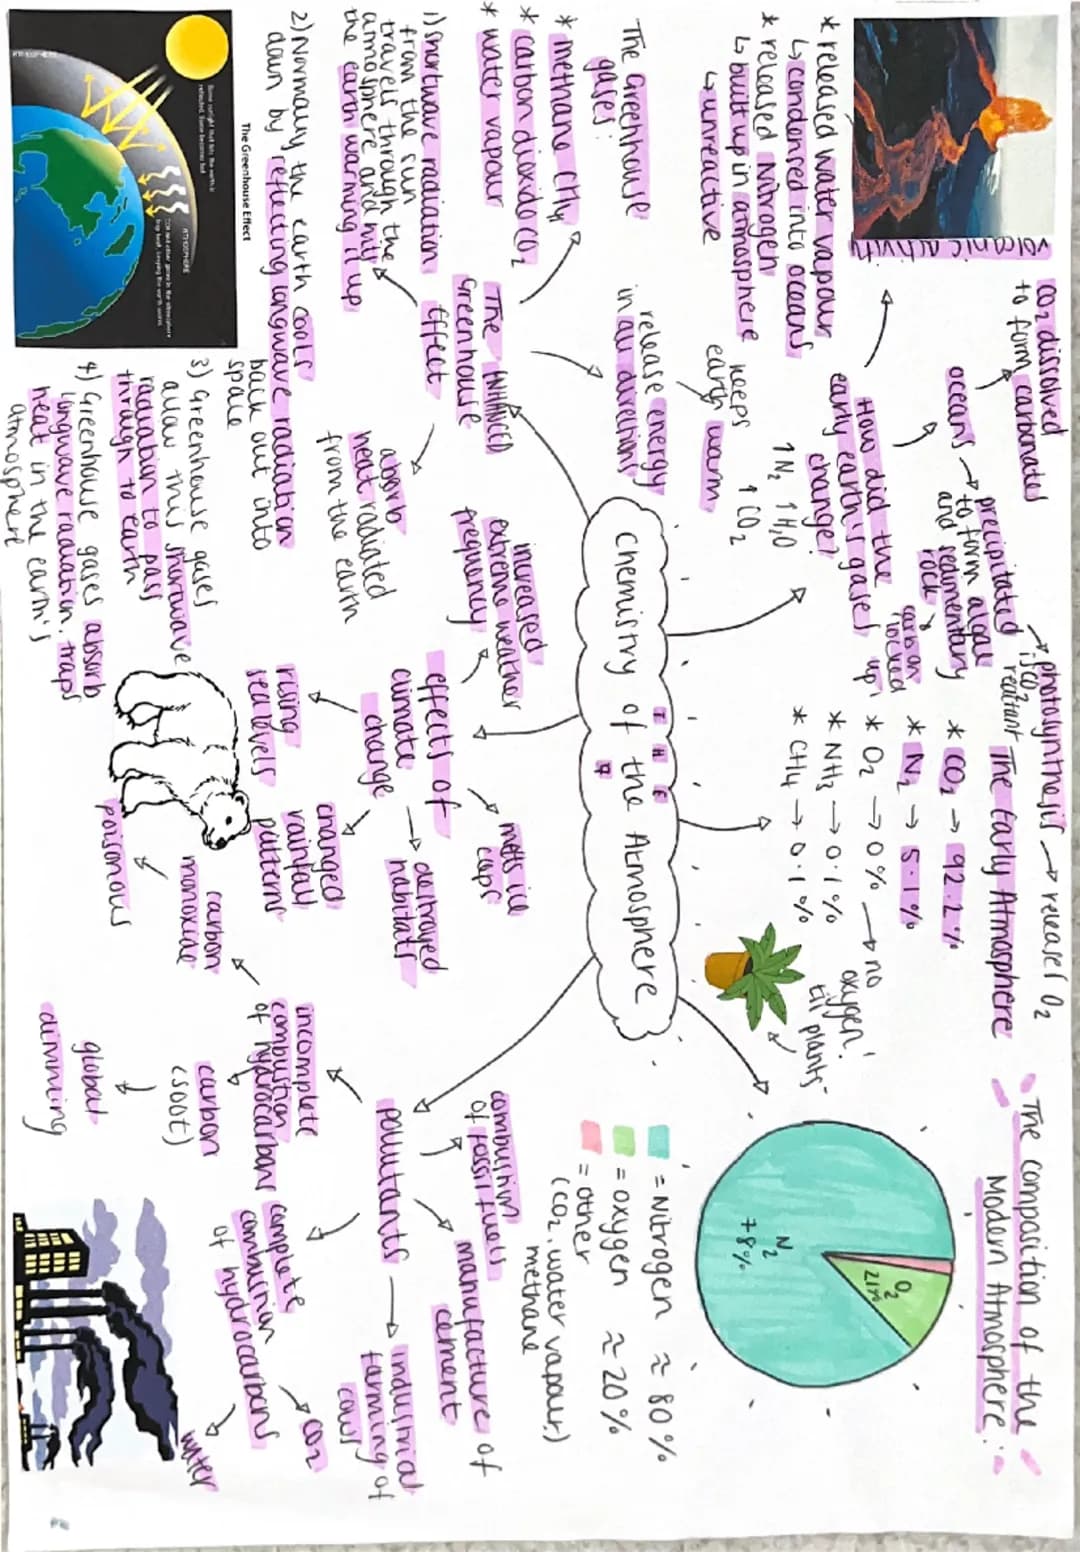 Chemistry of the Atmosphere
T H E
volcanic activity
* released water vapour
↳ condensed into oceans
* released Nitrogen
↳ built up in atmosphere
↳ unreactive
CO2 dissolved
to form carbonates
oceans → precipitated
to form algae
and sedimentary
rock
carbon
locked
up
How did the
early earth's gases
change?
↑ N2 ↑ H2O
↑ CO2
→ photosynthesis → releases O2
↳ CO2
reactant
The Early Atmosphere
* CO2 → 92.2%
* N2 → 5.1%
* O2 → 0% → no
oxygen
til plants!
* NH3 → 0.1%
* CH4 → 0.1%
The composition of the
Modern Atmosphere:
N2
78%
O2
21%
= Nitrogen ≈ 80%
= oxygen ≈ 20%
= other
(CO2, water vapour,
methane)
The Greenhouse
gases:
* methane CH4
* carbon dioxide CO2
* water vapour
release energy
in all directions
keeps
earth warm
The ENHANCED
Greenhouse
Effect
absorb
heat radiated
from the earth
1) shortwave radiation
from the sun
travels through the
atmosphere and hits
the earth warming it up
2) Normally the earth cools
down by reflecting longwave radiation
back out into
space
3) Greenhouse gases
allow this shortwave
radiation to pass
through to earth
4) Greenhouse gases absorb
longwave radiation. traps
heat in the earth's
atmosphere
The Greenhouse Effect
ATMOSPHERE
effects of
climate
change
increased
extreme weather
frequency
melts ice
caps
destroyed
habitats
changed
rainfall
patterns
rising
sea levels
pollutants
combustion
of fossil fuels
manufacture of
cement
industrial
farming of
cows
complete
combustion
of hydrocarbons
CO2
water
incomplete
combustion
of hydrocarbons
carbon
monoxide
poisonous
carbon
(soot)
global
dimming